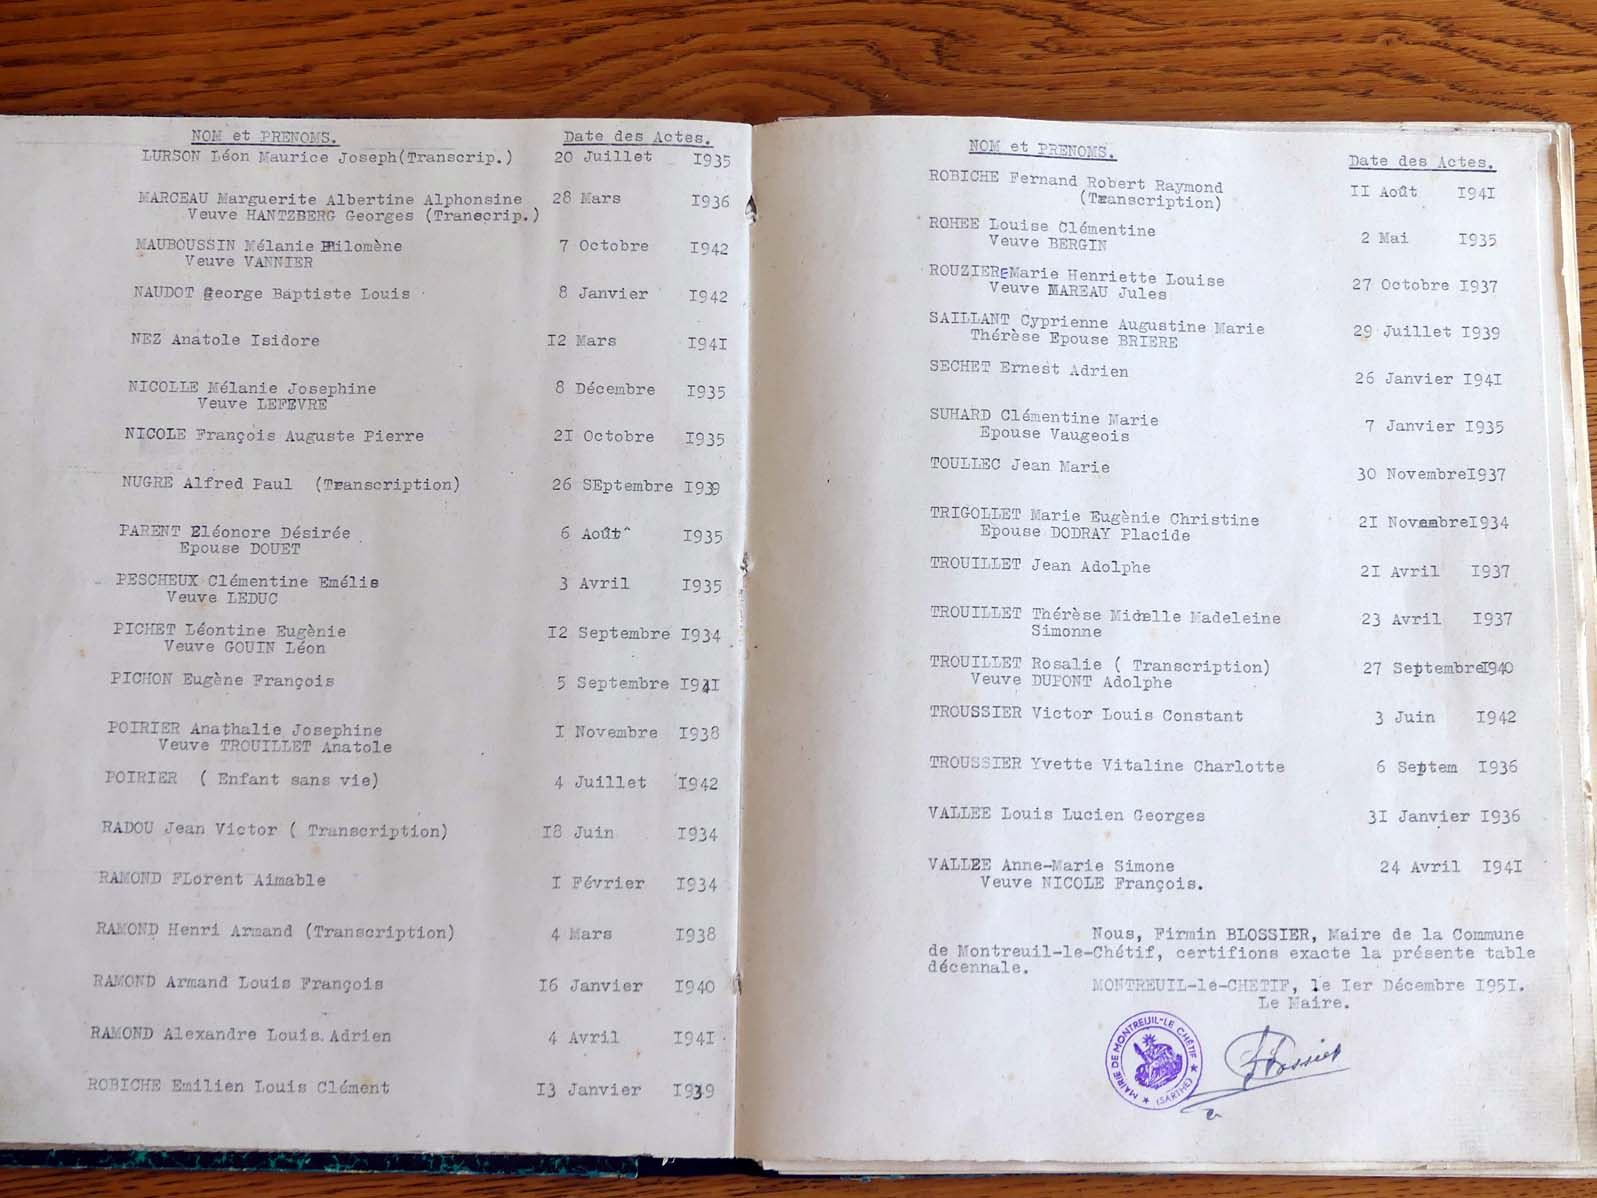 NOM et PRENOMS. Date des Actes.
LURSON Léon Maurice Joseph(Transcrip.) 20 Juillet I935
MARCEAU Marguerite Albertine Alphonsine 28 Mars I936
Veuve HANTZBERG Georges (Transcrip.)
MAUBOUSSIN Mélanie Philomène 7 Octobre I942
Veuve VANNIER
NAUDOT George Baptiste Louis 8 Janvier I942
NEZ Anatole Isidore I2 Mars I94I
NICOLLE Mélanie Josephine 8 Décembre I935
Veuve LEFEVRE
NICOLE François Auguste Pierre 2I Octobre I935
NUGRE Alfred Paul (Transcription) 26 SEptembre I939
PARENT Eléonore Désirée 6 Août^ I935
Epouse DOUET
PESCHEUX Clémentine Emélie 3 Avril I935
Veuve LEDUC
PICHET Léontine Eugènie I2 Septembre I934
Veuve GOUIN Léon
PICHON Eugène François 5 Septembre I94I
POIRIER Anathalie Josephine I Novembre I938
Veuve TROUILLET Anatole
POIRIER ( Enfant sans vie) 4 Juillet I942
RADOU Jean Victor ( Transcription) I8 Juin I934
RAMOND FLorent Aimable I Février I934
RAMOND Henri Armand (Transcription) 4 Mars I938
RAMOND Armand Louis François I6 Janvier I940
RAMOND Alexandre Louis Adrien 4 Avril I94I
ROBICHE Emilien Louis Clément I3 Janvier I939
NOM et PRENOMS. Date des Actes.
ROBICHE Fernand Robert Raymond II Août I94I
(Transcription)
ROHEE Louise Clémentine 2 Mai I935
Veuve BERGIN
ROUZIERE Marie Henriette Louise 27 Octobre I937
Veuve MAREAU Jules
SAILLANT Cyprienne Augustine Marie 29 Juillet I939
Thérèse Epouse BRIERE
SECHET Ernest Adrien 26 Janvier I94I
SUHARD Clémentine Marie 7 Janvier I935
Epouse Vaugeois
TOULLEC Jean Marie 30 NovembreI937
TRIGOLLET Marie Eugènie Christine 2I NovembreI934
Epouse DODRAY Placide
TROUILLET Jean Adolphe 2I Avril I937
TROUILLET Thérèse Micelle Madeleine 23 Avril I937
Simonne
TROUILLET Rosalie ( Transcription) 27 SeptembreI940
Veuve DUPONT Adolphe
TROUSSIER Victor Louis Constant 3 Juin I942
TROUSSIER Yvette Vitaline Charlotte 6 Septem I936
VALLEE Louis Lucien Georges 3I Janvier I936
VALLEE Anne-Marie Simone 24 Avril I94I
Veuve NICOLE François.
Nous, Firmin BLOSSIER, Maire de la Commune
de Montreuil-le-Chétif, certifions exacte la présente table
décennale.
MONTREUIL-le-CHETIF, le Ier Décembre I95I.
Le Maire.
MAIRIE DE MONTREUIL-LE CHÉTIF ★ (SARTHE) ★
Blossier